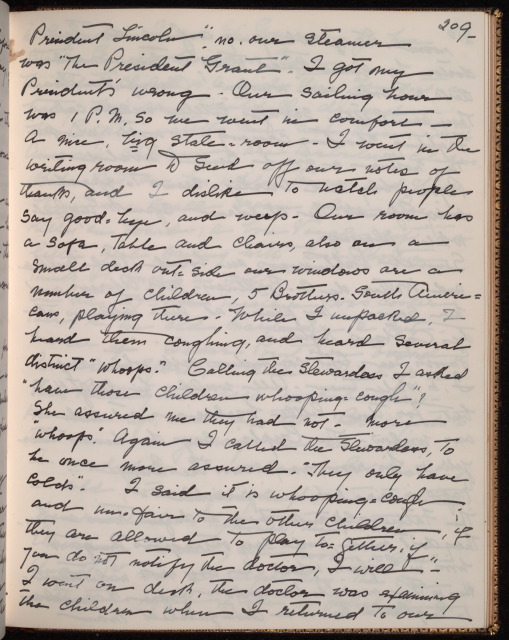 209-
President Lincoln", no. our steamer
was "The President Grant". I got my
Presidents' wrong - Our sailing hour
was 1 P.M. so we went in comfort -
A nice, big state-room - I went in the
writing room to send off our notes of
thanks, and I dislike to watch people
say good-bye, and weep - Our room has
a sofa, table and chairs, also on a
small deck out-side our windows are a
number of children, 5 Brothers. South Ameri=
cans, playing there - While I unpacked, I
heard them coughing, and heard several
distinct "whoops." Calling the Stewardess I asked
"have those children whooping-cough"?
She assured me they had not - more
"whoops." Again I called the Stewardess, to
be once more assured - "They only have
colds". I said it is whooping-cough
and un-fair to the other children, if
they are allowed to play to-gether, if
you do not notify the doctor, I will" -
I went on deck, the doctor was examining
the children when I returned to our